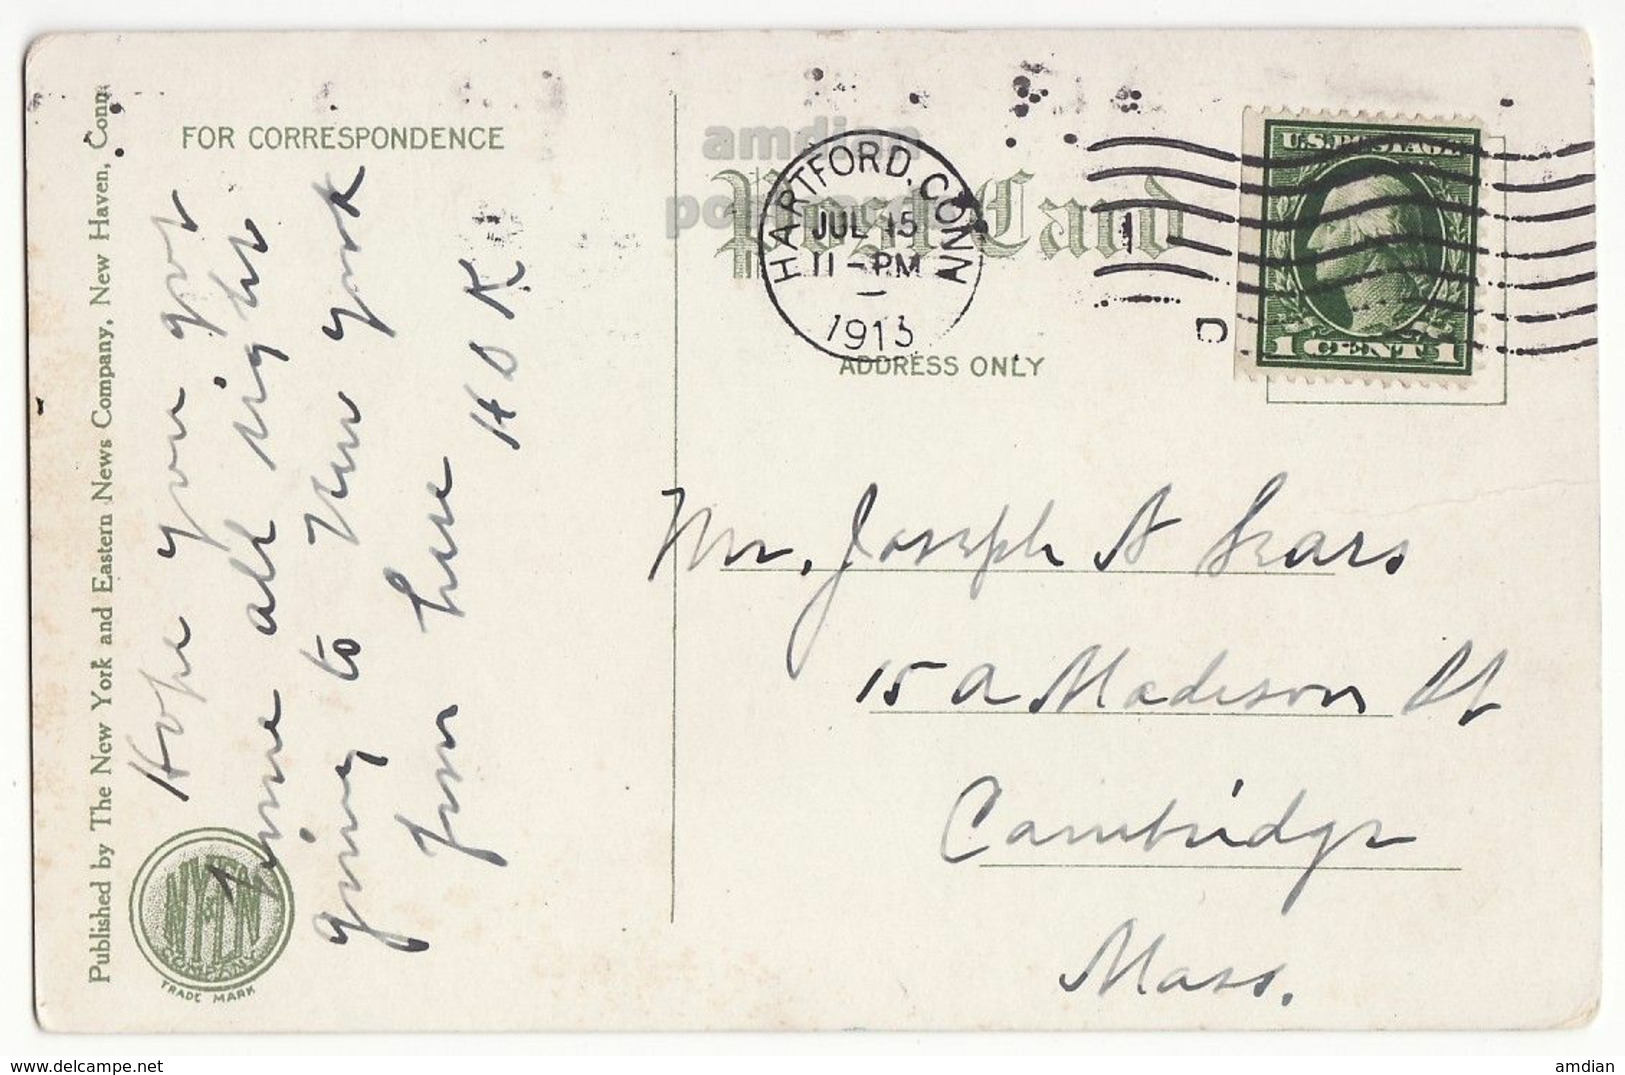 FOR CORRESPONDENCE
Hope you got
home all right
going to New York
from here H D K
Published by The New York and Eastern News Company, New Haven, Conn.
NY & EN
COMPANY
TRADE MARK
amdian
Post Card
HARTFORD, CONN
JUL 15
11-PM
1913
1
ADDRESS ONLY
U.S. POSTAGE
1 CENT 1
Mr. Joseph A Sears
15 A Madison St
Cambridge
Mass.
www.delcampe.net
amdian